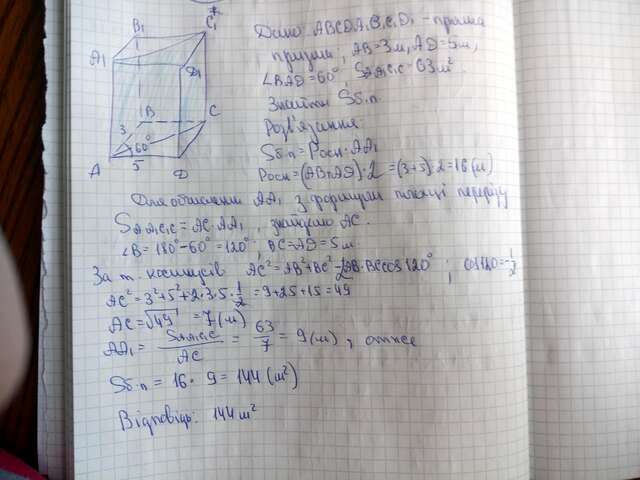 B₁
C₁
A₁
D₁
B
C
3
60°
A
5
D
Дано ABCDA₁B₁C₁D₁ - пряма
призма, AB=3м, AD=5м,
∠BAD=60°, SAA₁C₁C=63м².
Знайти Sб.п.
Розв'язання
Sб.п=Pосн·AA₁
Pосн=(AB+AD)·2=(3+5)·2=16(м)
Для обчислення AA₁ з формули площі перерізу
SAA₁C₁C=AC·AA₁, знайдемо AC.
∠B=180°-60°=120°, BC=AD=5м
За т. косинусів AC²=AB²+BC²-2AB·BCcos120°; cos120=-1/2
AC²=3²+5²+2·3·5·1/2=9+25+15=49
AC=√49=7(м)
AA₁=SAA₁C₁C/AC=63/7=9(м), отже
Sб.п=16·9=144(м²)
Відповідь: 144м²